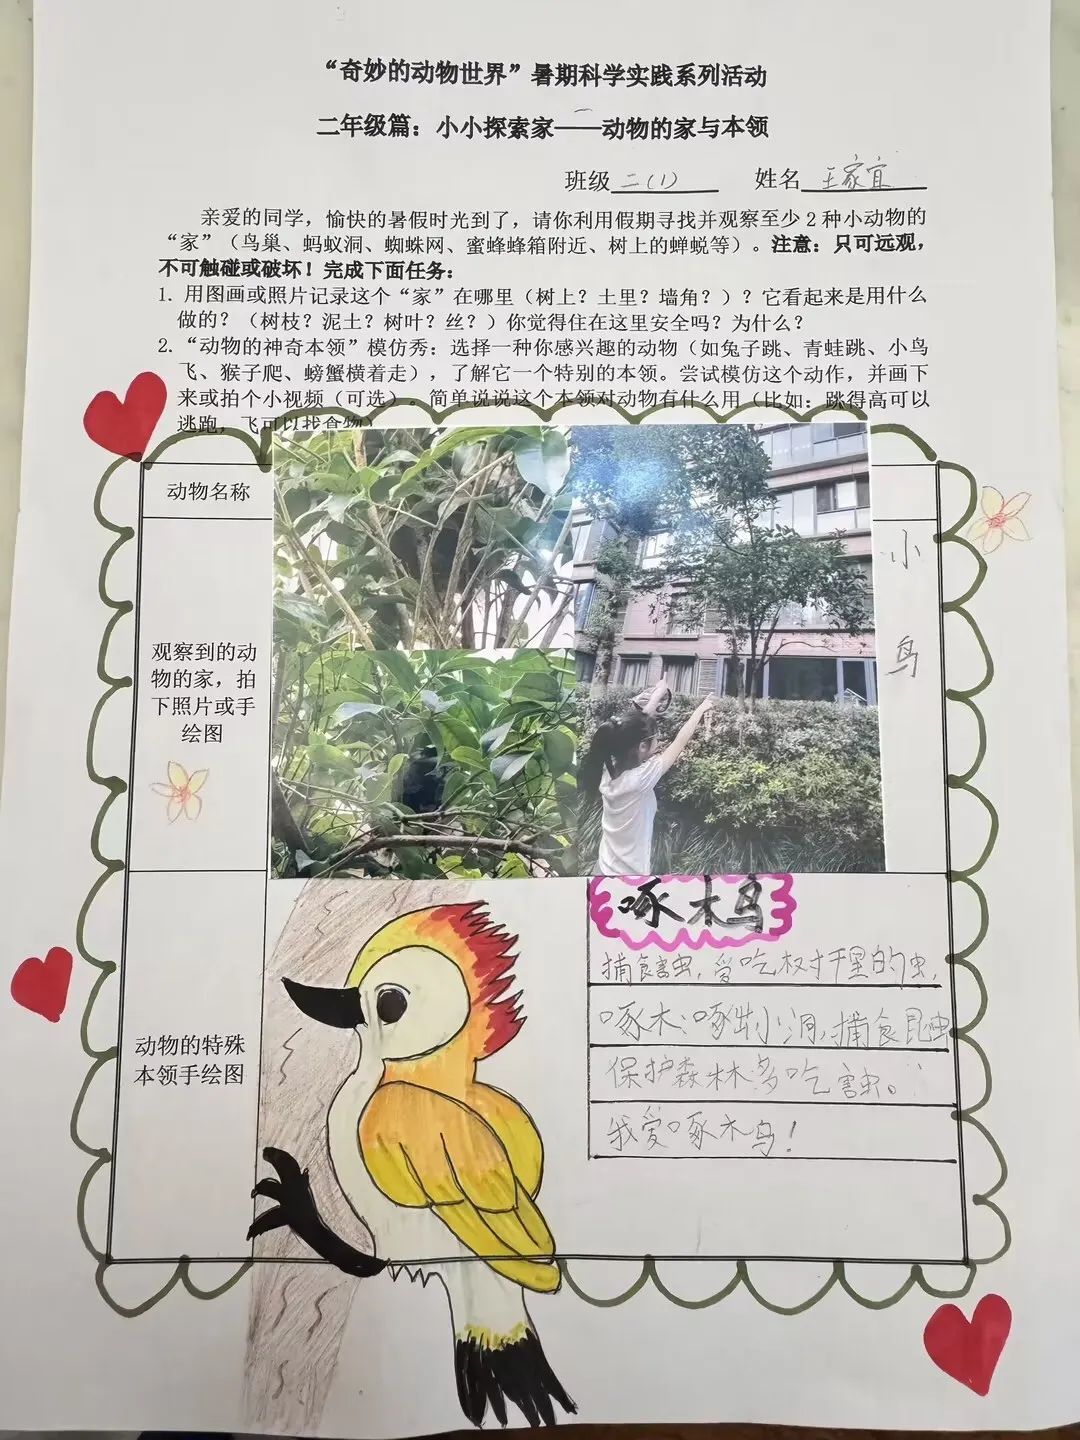 “奇妙的动物世界”暑期科学实践系列活动
二年级篇：小小探索家——动物的家与本领
班级 二(1) 姓名 王家宜
亲爱的同学，愉快的暑假时光到了，请你利用假期寻找并观察至少 2 种小动物的
“家”（鸟巢、蚂蚁洞、蜘蛛网、蜜蜂蜂箱附近、树上的蝉蜕等）。注意：只可远观，
不可触碰或破坏！完成下面任务：
1. 用图画或照片记录这个“家”在哪里（树上？土里？墙角？）？它看起来是用什么
做的？（树枝？泥土？树叶？丝？）你觉得住在这里安全吗？为什么？
2. “动物的神奇本领”模仿秀：选择一种你感兴趣的动物（如兔子跳、青蛙跳、小鸟
飞、猴子爬、螃蟹横着走），了解它一个特别的本领。尝试模仿这个动作，并画下
来或拍个小视频（可选）。简单说说这个本领对动物有什么用（比如：跳得高可以
逃跑，飞可以找食物）
动物名称
小
鸟
观察到的动
物的家，拍
下照片或手
绘图
动物的特殊
本领手绘图
啄木鸟
捕食害虫，爱吃树干里的虫，
啄木：啄出小洞，捕食昆虫
保护森林多吃害虫。
我爱啄木鸟！